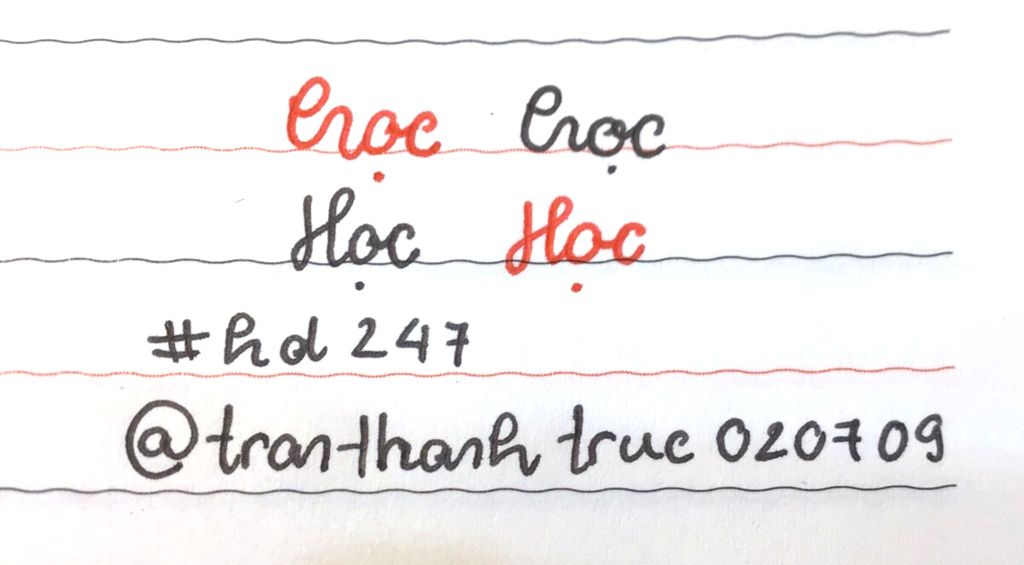 học học
Học Học
#hd 247
@tranthanh truc 020709